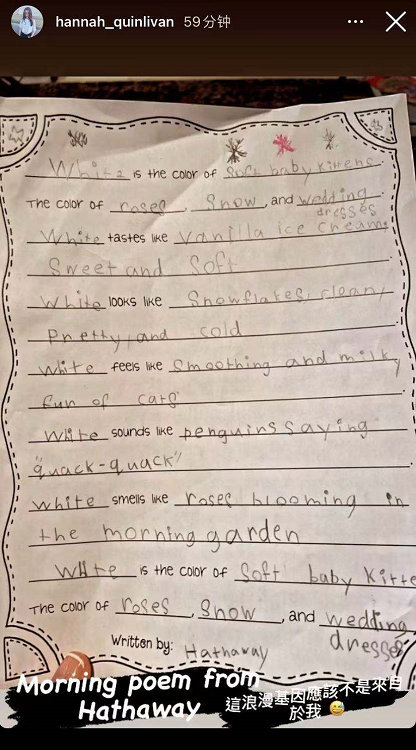 hannah_quinlivan 59分钟
White is the color of soft baby kittens
The color of roses, Snow, and wedding
dresses
White tastes like Vanilla ice cream,
Sweet and Soft
White looks like Snowflakes, clean,
Pretty, and cold
White feels like Smoothing and milk,
fun of cats
White sounds like penguins saying
"quack-quack"
White smells like roses blooming in
the morning garden
White is the color of Soft baby Kitte
The color of roses, Snow, and wedding
dresses
Written by: Hathaway
Morning poem from
Hathaway
這浪漫基因應該不是來自
於我 😅